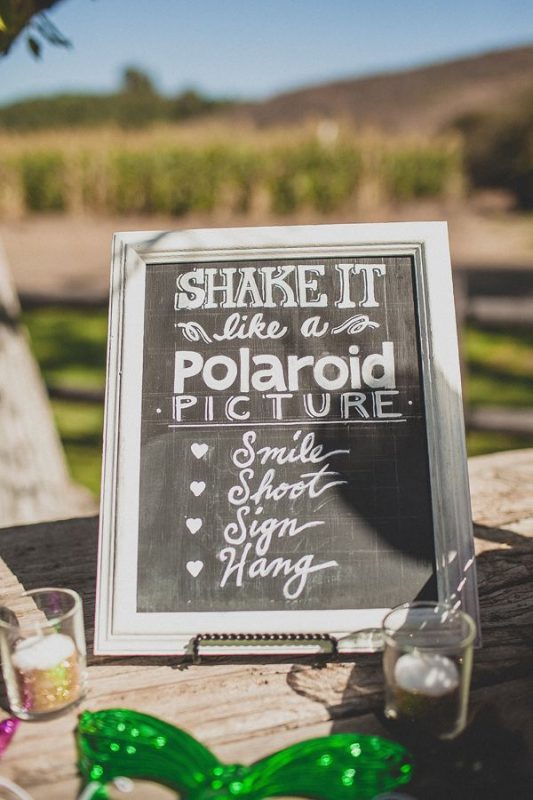 SHAKE IT
like a
Polaroid
· PICTURE ·
Smile
Shoot
Sign
Hang